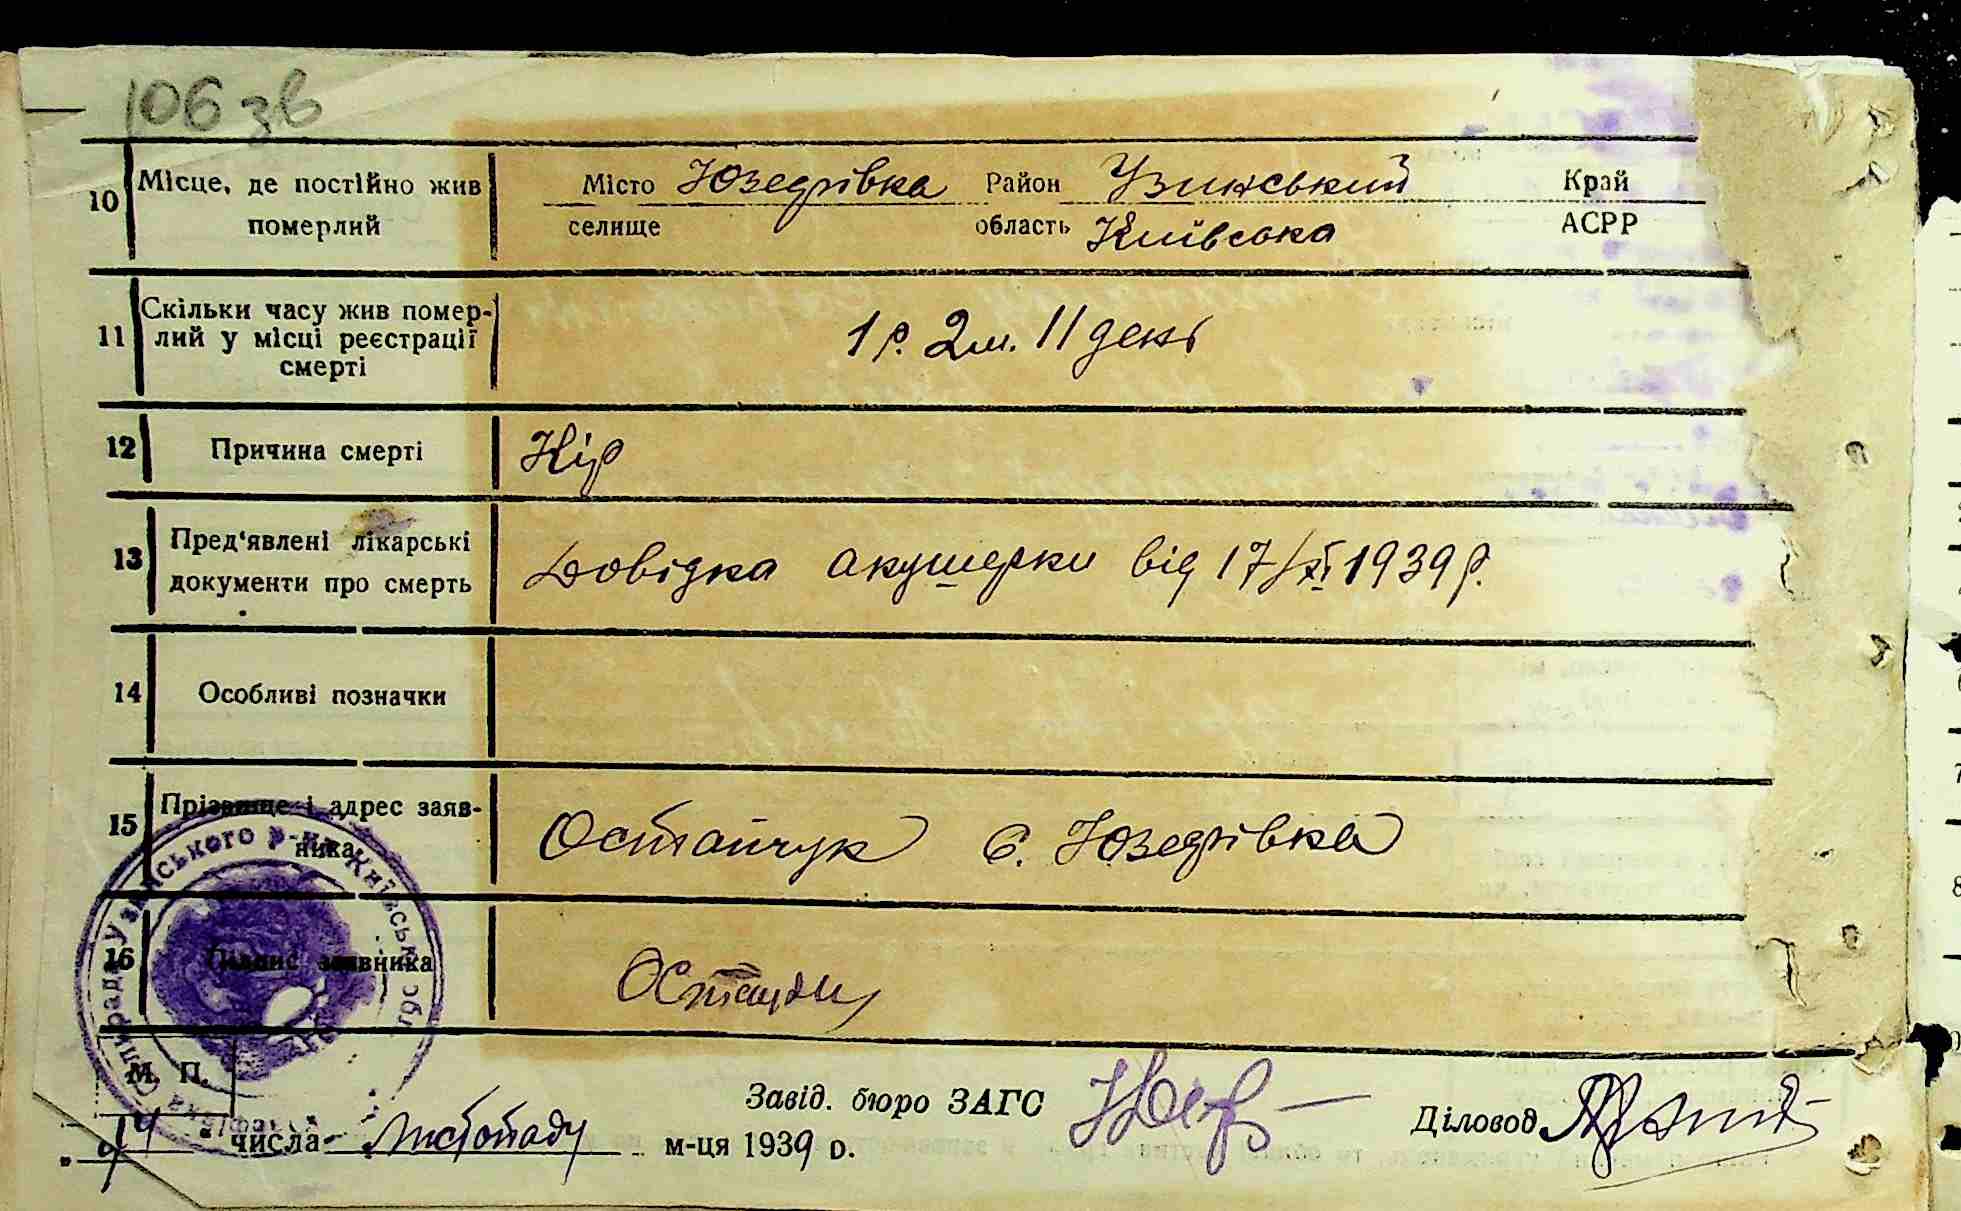 106 зв
10 Місце, де постійно жив Місто Юзефівка Район Узинський Край
померлий селище область Київська АСРР
Скільки часу жив помер-
11 лий у місці реєстрації 1 р. 2 м. 11 день
смерті
12 Причина смерті Кір
13 Пред'явлені лікарські Довідка акушерки від 17/XI 1939 р.
документи про смерть
14 Особливі позначки
15 Прізвище і адрес заяв- Остапчук С. Юзефівка
ника
16 Підпис заявника
М. П.
Завід. бюро ЗАГС Діловод
числа листопаду м-ця 1939 р.